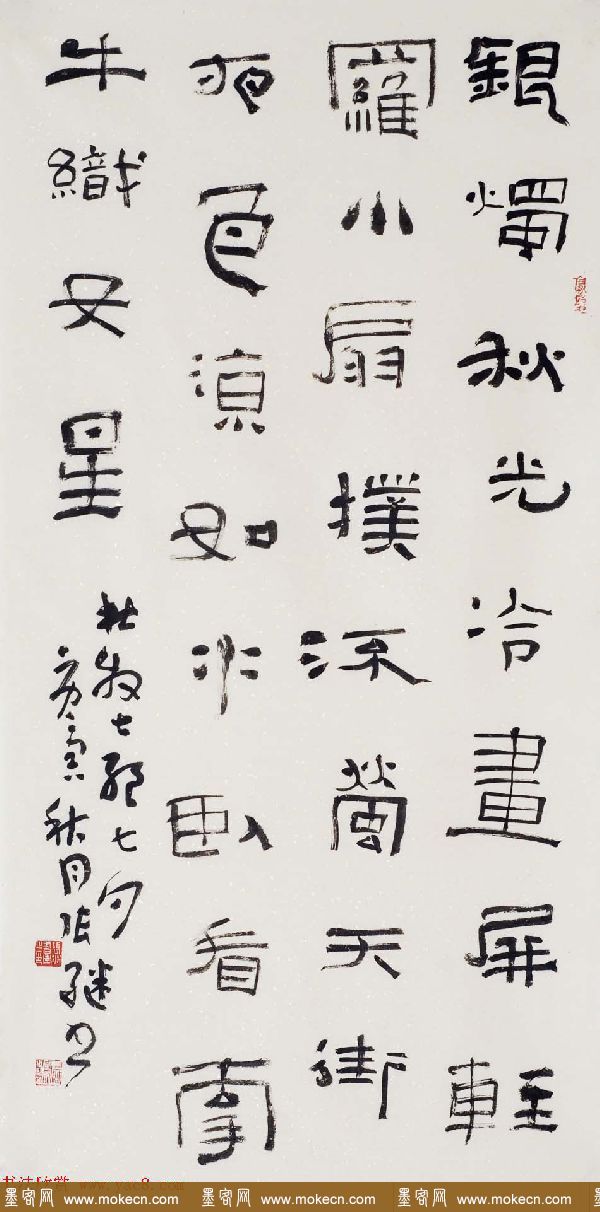 銀燭秋光冷畫屏輕
羅小扇撲流螢天街
夜色涼如水臥看牽
牛織女星
杜牧七絕七夕
庚寅秋月张继书
书法欣赏 www.yac8.com
墨客网 www.mokecn.com 墨客网 www.mokecn.com 墨客网 www.mokecn.com